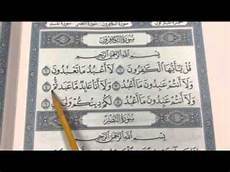 سورة الكافرون
بسم الله الرحمن الرحيم
قل يأيها الكفرون لا أعبد ما تعبدون
ولا أنتم عبدون ما أعبد ولا أنا عابد ما عبدتم
ولا أنتم عبدون ما أعبد لكم دينكم ولي
سورة النصر
بسم الله الرحمن الرحيم